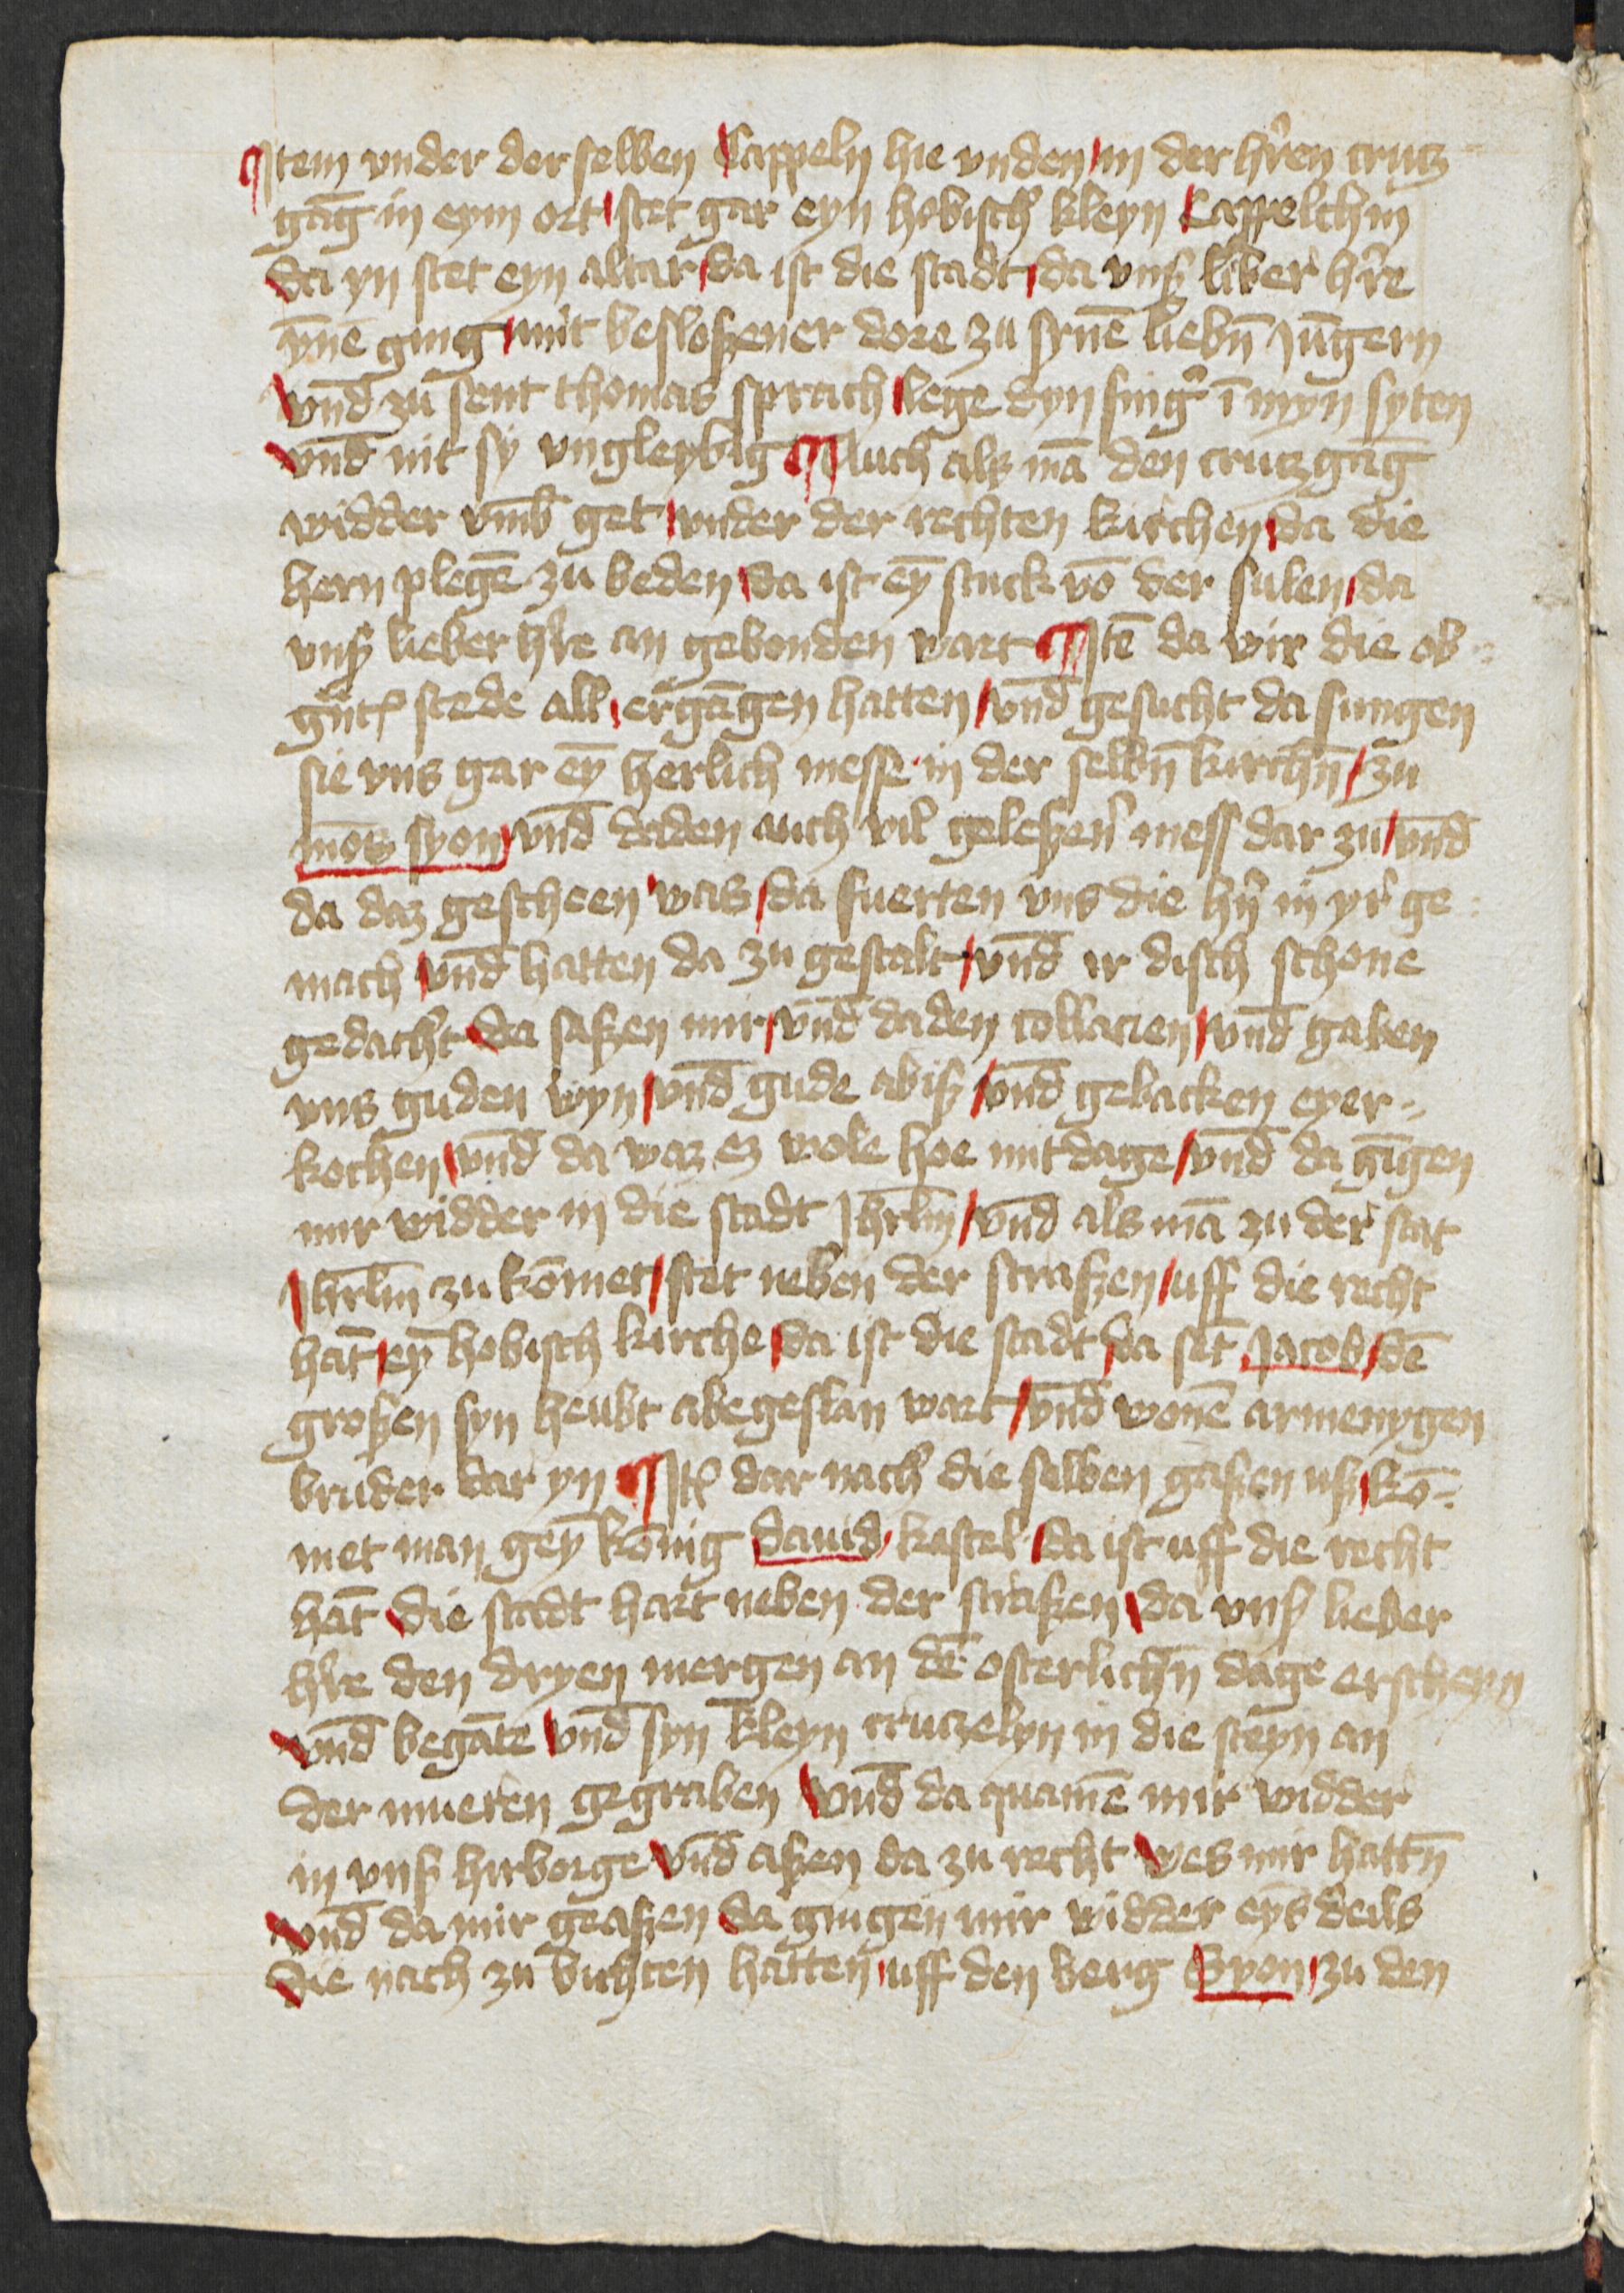 Jtem vnder der selben Cappeln hie vnden in der h͛ren crutz
gāg in eym ort stet gar eyn hobisch kleyn Cappelchin
da yn stet eyn altar da ist die stadt da vnß liber h͛re
ÿnē ging mit besloßener dore zu synē liebn̄ Jūgern
vnd̄ zu sent thomas sprach lege dyn fing͛ ī myn syten
vnd̄ nit sy vngleybig Auch als mā den crutzgāg
widder vmb get vnder der rechten kirchen da die
hern plegē zu beden da ist eȳ stuck vō der sulen da
vnß lieber h͛re an gebonden wart Jtē da wir die ob
gn̄t stede all ergāgen hatten vnd̄ gesucht da sungen
sie vns gar eȳ herlich messe in der selbn̄ kirchn̄ zu
mōs syon vnd̄ daden auch vil geleßen͛ mess dar zu vnd̄
da daz gescheen was da fuerten vns die hn̄ in yr͛ ge
mach vnd̄ hatten da zu gestalt vnd̄ ir disch schone
gedacht da saßen mir vnd̄ daden collacien vnd̄ gaben
vns guden wyn vnd̄ gude abiß vnd̄ gebacken eyer
kochen vnd̄ da waz ez wole hoe mitdage vnd̄ da gīgen
mir widder in die stadt Jhrlm̄ vnd̄ als mā zu der stat
Jhrlm̄ zu kōmet stet neben der straßen uff die recht
hāt eȳ hobisch kirche da ist die stadt da sēt Jacob dē
großen syn heubt abegeslan wart vnd̄ wonē armenygen
bruder dar yn Jt dar nach die selben gaßen uß kō
met man geȳ kōnig dauid kastel da ist uff die recht
hāt die stadt hart neben der straßen da vnß lieber
h͛re den dryen mergen an dē osterlichn̄ dage erscheyn
vnd̄ begāte vnd̄ syn kleyn crutzelyn in die steyn an
der mueren gegraben vnd̄ da quamē mir widder
in vnß hirborge vnd̄ aßen da zu recht wes mir hattn̄
vnd̄ da mir geaßen da gingen mir widder eyns deils
die nach zu bichten hatten uff den berg Syon zu den